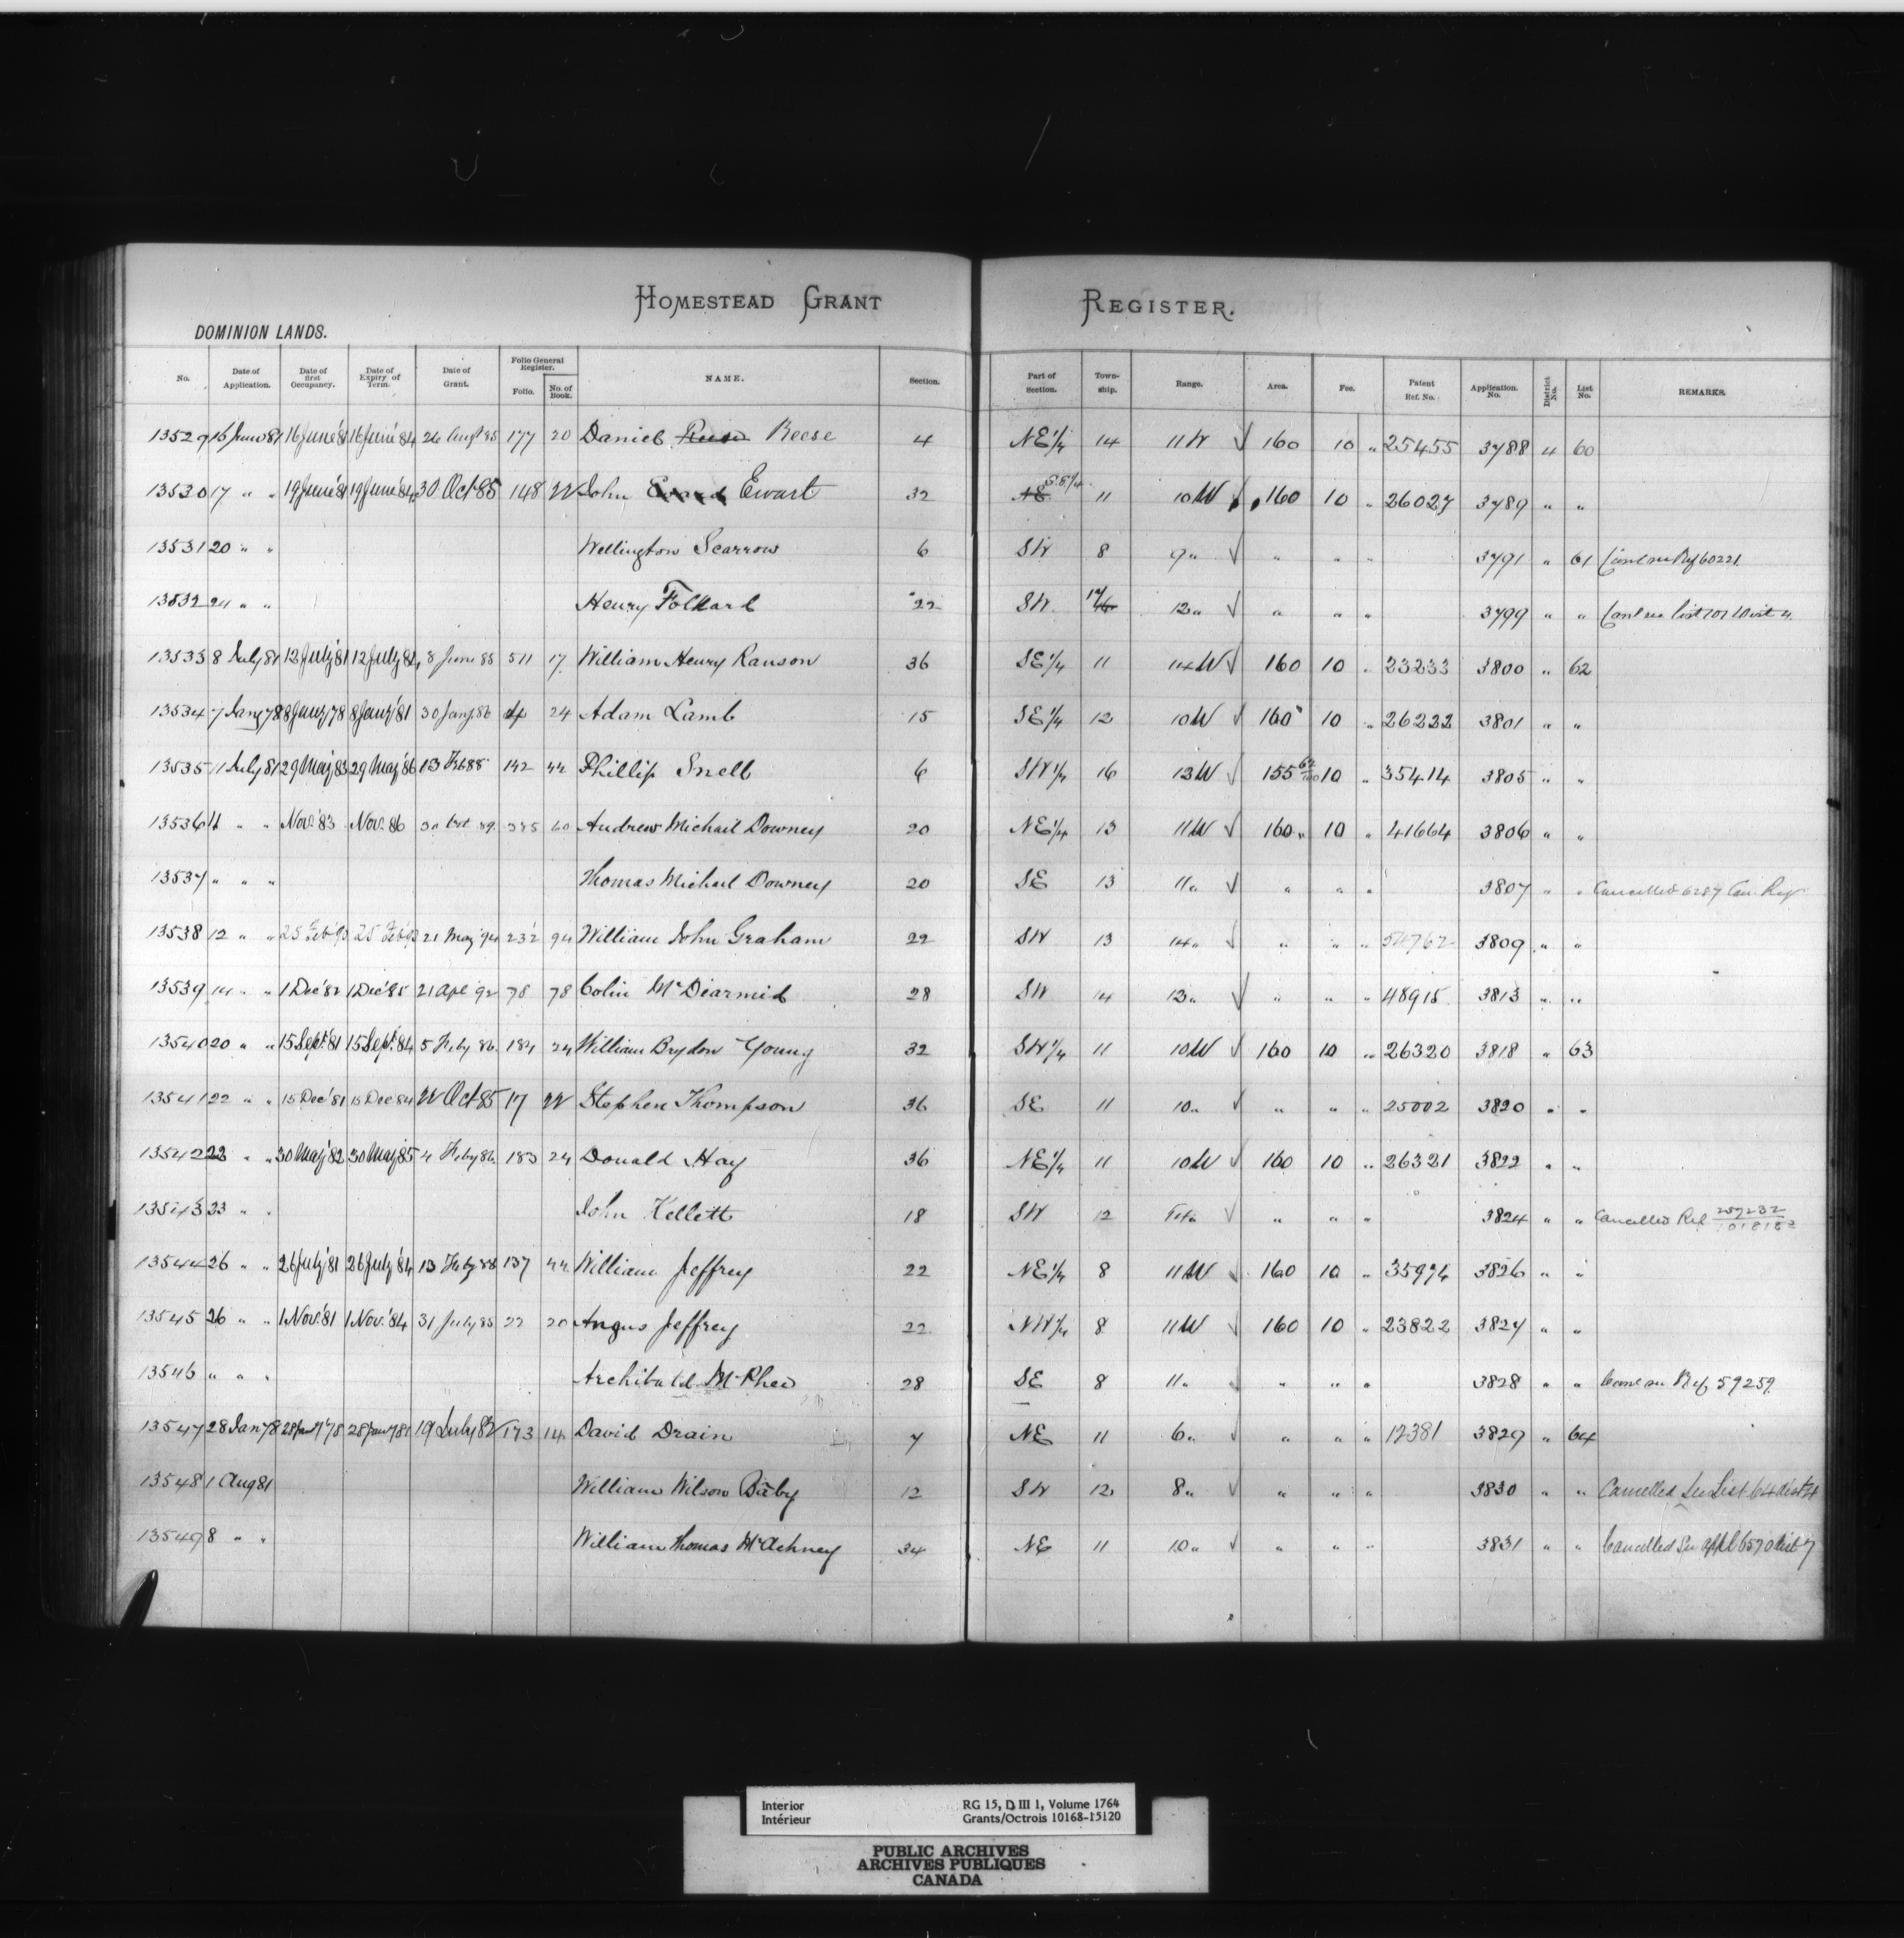 HOMESTEAD GRANT REGISTER.
DOMINION LANDS.
No. Date of Application. Date of first Occupancy. Date of Expiry of Term. Date of Grant. Folio General Register. Folio. No. of Book. NAME. Section. Part of Section. Town-ship. Range. Area. Fee. Patent Ref. No. Application. No. District No. List No. REMARKS.
13529 16 June 81 16 June '81 16 June '84 26 Augt 85 177 20 Daniel Reese 4 NE 1/4 14 11 W √ 160 10 " 25455 3788 4 60
13530 17 " " 19 June '81 19 June '84 30 Oct 85 148 22 John Ewart 32 NE S.E 1/4 11 10 W √ 160 10 " 26027 3789 " "
13531 20 " " Wellington Scarrow 6 SW 8 9 " √ " " " 3791 " 61 Canl see Ref 60221
13532 24 " " Henry Folkard 22 SW 12 " √ " " " 3799 " " Canl see list 101 Dist 4
13533 8 July 81 12 July '81 12 July '84 8 June 85 511 17 William Henry Ranson 36 SE 1/4 11 14 W √ 160 10 " 23233 3800 " 62
13534 7 Jany 78 8 Jany '78 8 Jany '81 30 Jany 86 4 24 Adam Lamb 15 SE 1/4 12 10 W √ 160 10 " 26222 3801 " "
13535 11 July 81 29 May '83 29 May '86 13 Feb 88 142 44 Phillip Snell 6 SW 1/4 16 13 W √ 155 62/100 10 " 35414 3805 " "
13536 11 " " Nov. 83 Nov. 86 30 Oct 89 335 60 Andrew Michail Downey 20 NE 1/4 13 11 W √ 160 " 10 " 41664 3806 " "
13537 " " " Thomas Michael Downey 20 SE 13 11 " √ " " " 3807 " " Cancelled 6287 Can. Reg
13538 12 " " 25 Feb '93 21 May '94 232 94 William John Graham 22 SW 13 14 " √ " " " 54762 3809 " "
13539 14 " " 1 Dec '82 1 Dec '85 21 Apl 92 78 78 Colin McDiarmid 28 SW 14 13 " √ " " " 48915 3813 " "
13540 20 " " 15 Sept. '81 15 Sept. '84 5 Feby 86 184 24 William Brydon Young 32 SW 1/4 11 10 W √ 160 10 " 26320 3818 " 63
13541 22 " " 15 Dec '81 15 Dec '84 22 Oct 85 17 22 Stephen Thompson 36 SE 11 10 " √ " " " 25002 3820 " "
13542 22 " " 30 May '82 30 May '85 4 Feby 86 183 24 Donald Hay 36 NE 1/4 11 10 W √ 160 10 " 26321 3822 " "
13543 23 " " John Kellett 18 SW 12 √ " " " 3824 " " Cancelled Ref 259232 / 1018182
13544 26 " " 26 July '81 26 July '84 13 Feby 88 137 44 William Jeffrey 22 NE 1/4 8 11 W √ 160 10 " 35974 3826 " "
13545 26 " " 1 Nov. '81 1 Nov. '84 31 July 85 22 20 Angus Jeffrey 22 NW 1/4 8 11 W √ 160 10 " 23822 3827 " "
13546 " " " Archibald McPhee 28 SE 8 11 " √ " " " 3828 " " Canl see Ref 59259
13547 28 Jan 78 28 Jany '78 28 Jany 81 19 July 82 173 14 David Drain 7 NE 11 6 " √ " " " 12381 3829 " 64
13548 1 Aug 81 William Wilson Baby 12 SW 12 8 " √ " " " 3830 " " Cancelled See List 64 dist 4
13549 8 " " William Thomas McAchney 34 NE 11 10 " √ " " " 3831 " " Cancelled See appl 6570 dist 7
Interior RG 15, D III 1, Volume 1764
Intérieur Grants/Octrois 10168-15120
PUBLIC ARCHIVES
ARCHIVES PUBLIQUES
CANADA